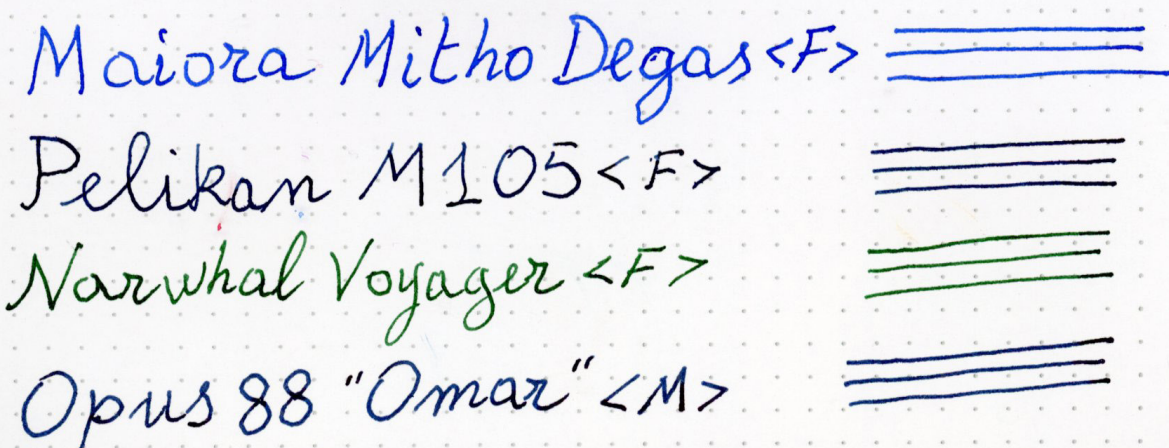 Maiora Mitho Degas <F>
Pelikan M105 <F>
Narwhal Voyager <F>
Opus 88 "Omar" <M>